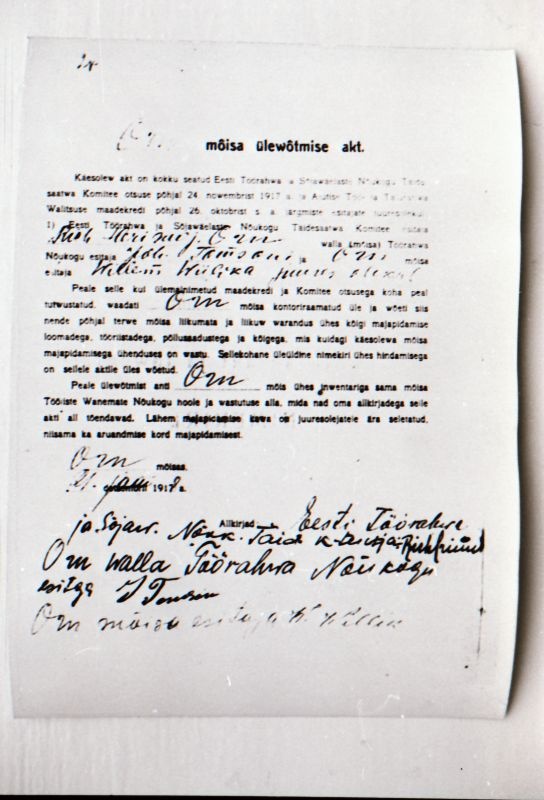 Oru mõisa ülewõtmise akt.
Käesolew akt on kokku seatud Eesti Töörahwa ja Sõjawäelaste Nõukogu Täide-
saatwa Komitee otsuse põhjal 24. nowembrist 1917 a. ja Ajutise Töö- ja Talurahwa
Walitsuse maadekredi põhjal 26. oktobrist s. a. järgmiste esitajate juuresolekul:
1) Eesti Töörahwa ja Sõjawäelaste Nõukogu Täidesaatwa Komitee esitaja
Oru walla (mõisa) Töörahwa
Nõukogu esitaja Joh. ja Orn mõisa
esitaja Willem juures olekul
Peale selle kui ülemalnimetud maadekredi ja Komitee otsusega koha peal
tutwustatud, waadati Orn mõisa kontoriraamatud üle ja wõeti siis
nende põhjal terwe mõisa liikumata ja liikuw warandus ühes kõigi majapidamise
loomadega, tööriistadega, põllusaadustega ja kõigega, mis kuidagi käesolewa mõisa
majapidamisega ühenduses on wastu. Sellekohane üleüldine nimekiri ühes hindamisega
on sellele aktile üles wõetud.
Peale ülewõtmist anti Orn mõis ühes inwentariga sama mõisa
Tööliste Wanemate Nõukogu hoole ja wastutuse alla, mida nad oma alikirjadega selle
akti all tõendawad. Lähem majapidamise kawa on juuresolejatele ära seletatud,
niisama ka aruandmise kord majapidamisest.
Orn mõisas,
21. jaan 1918 a.
Allkirjad Eesti Töörahwa
ja Sõjaw. Nõuk. Täid k.
Orn walla Töörahwa Nõukogu
esitaja J
Orn mõisa esitaja W